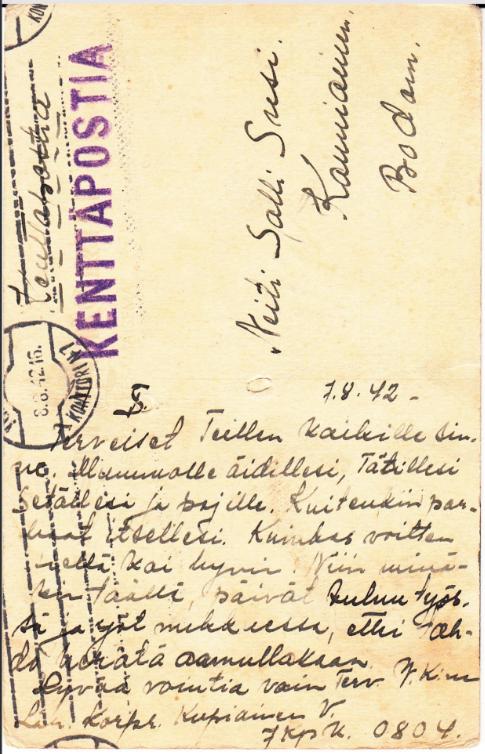 Kenttäpostia
KENTTÄPOSTIA
8.8.42.16.
KONTTORI N:7
Neiti Salli Susi.
Kauniainen.
Bodom.
7.8.42-
Terveiset Teillen kaikille sin-
ne. Mummolle äidillesi, Tätillesi
sedällesi ja pojille. Kuitenkin par-
haat itsellesi. Kuinkas voitten
siellä kai hyvin. Niin minä-
kin täälli, päivät kuluu työs-
sä ja yöt nukkuessa, ettei tah-
do herätä aamullakaan.
Hyvää vointia vain Terv.
Läh. Korpr. Kupiainen V.
7 Kp.K. 0804.